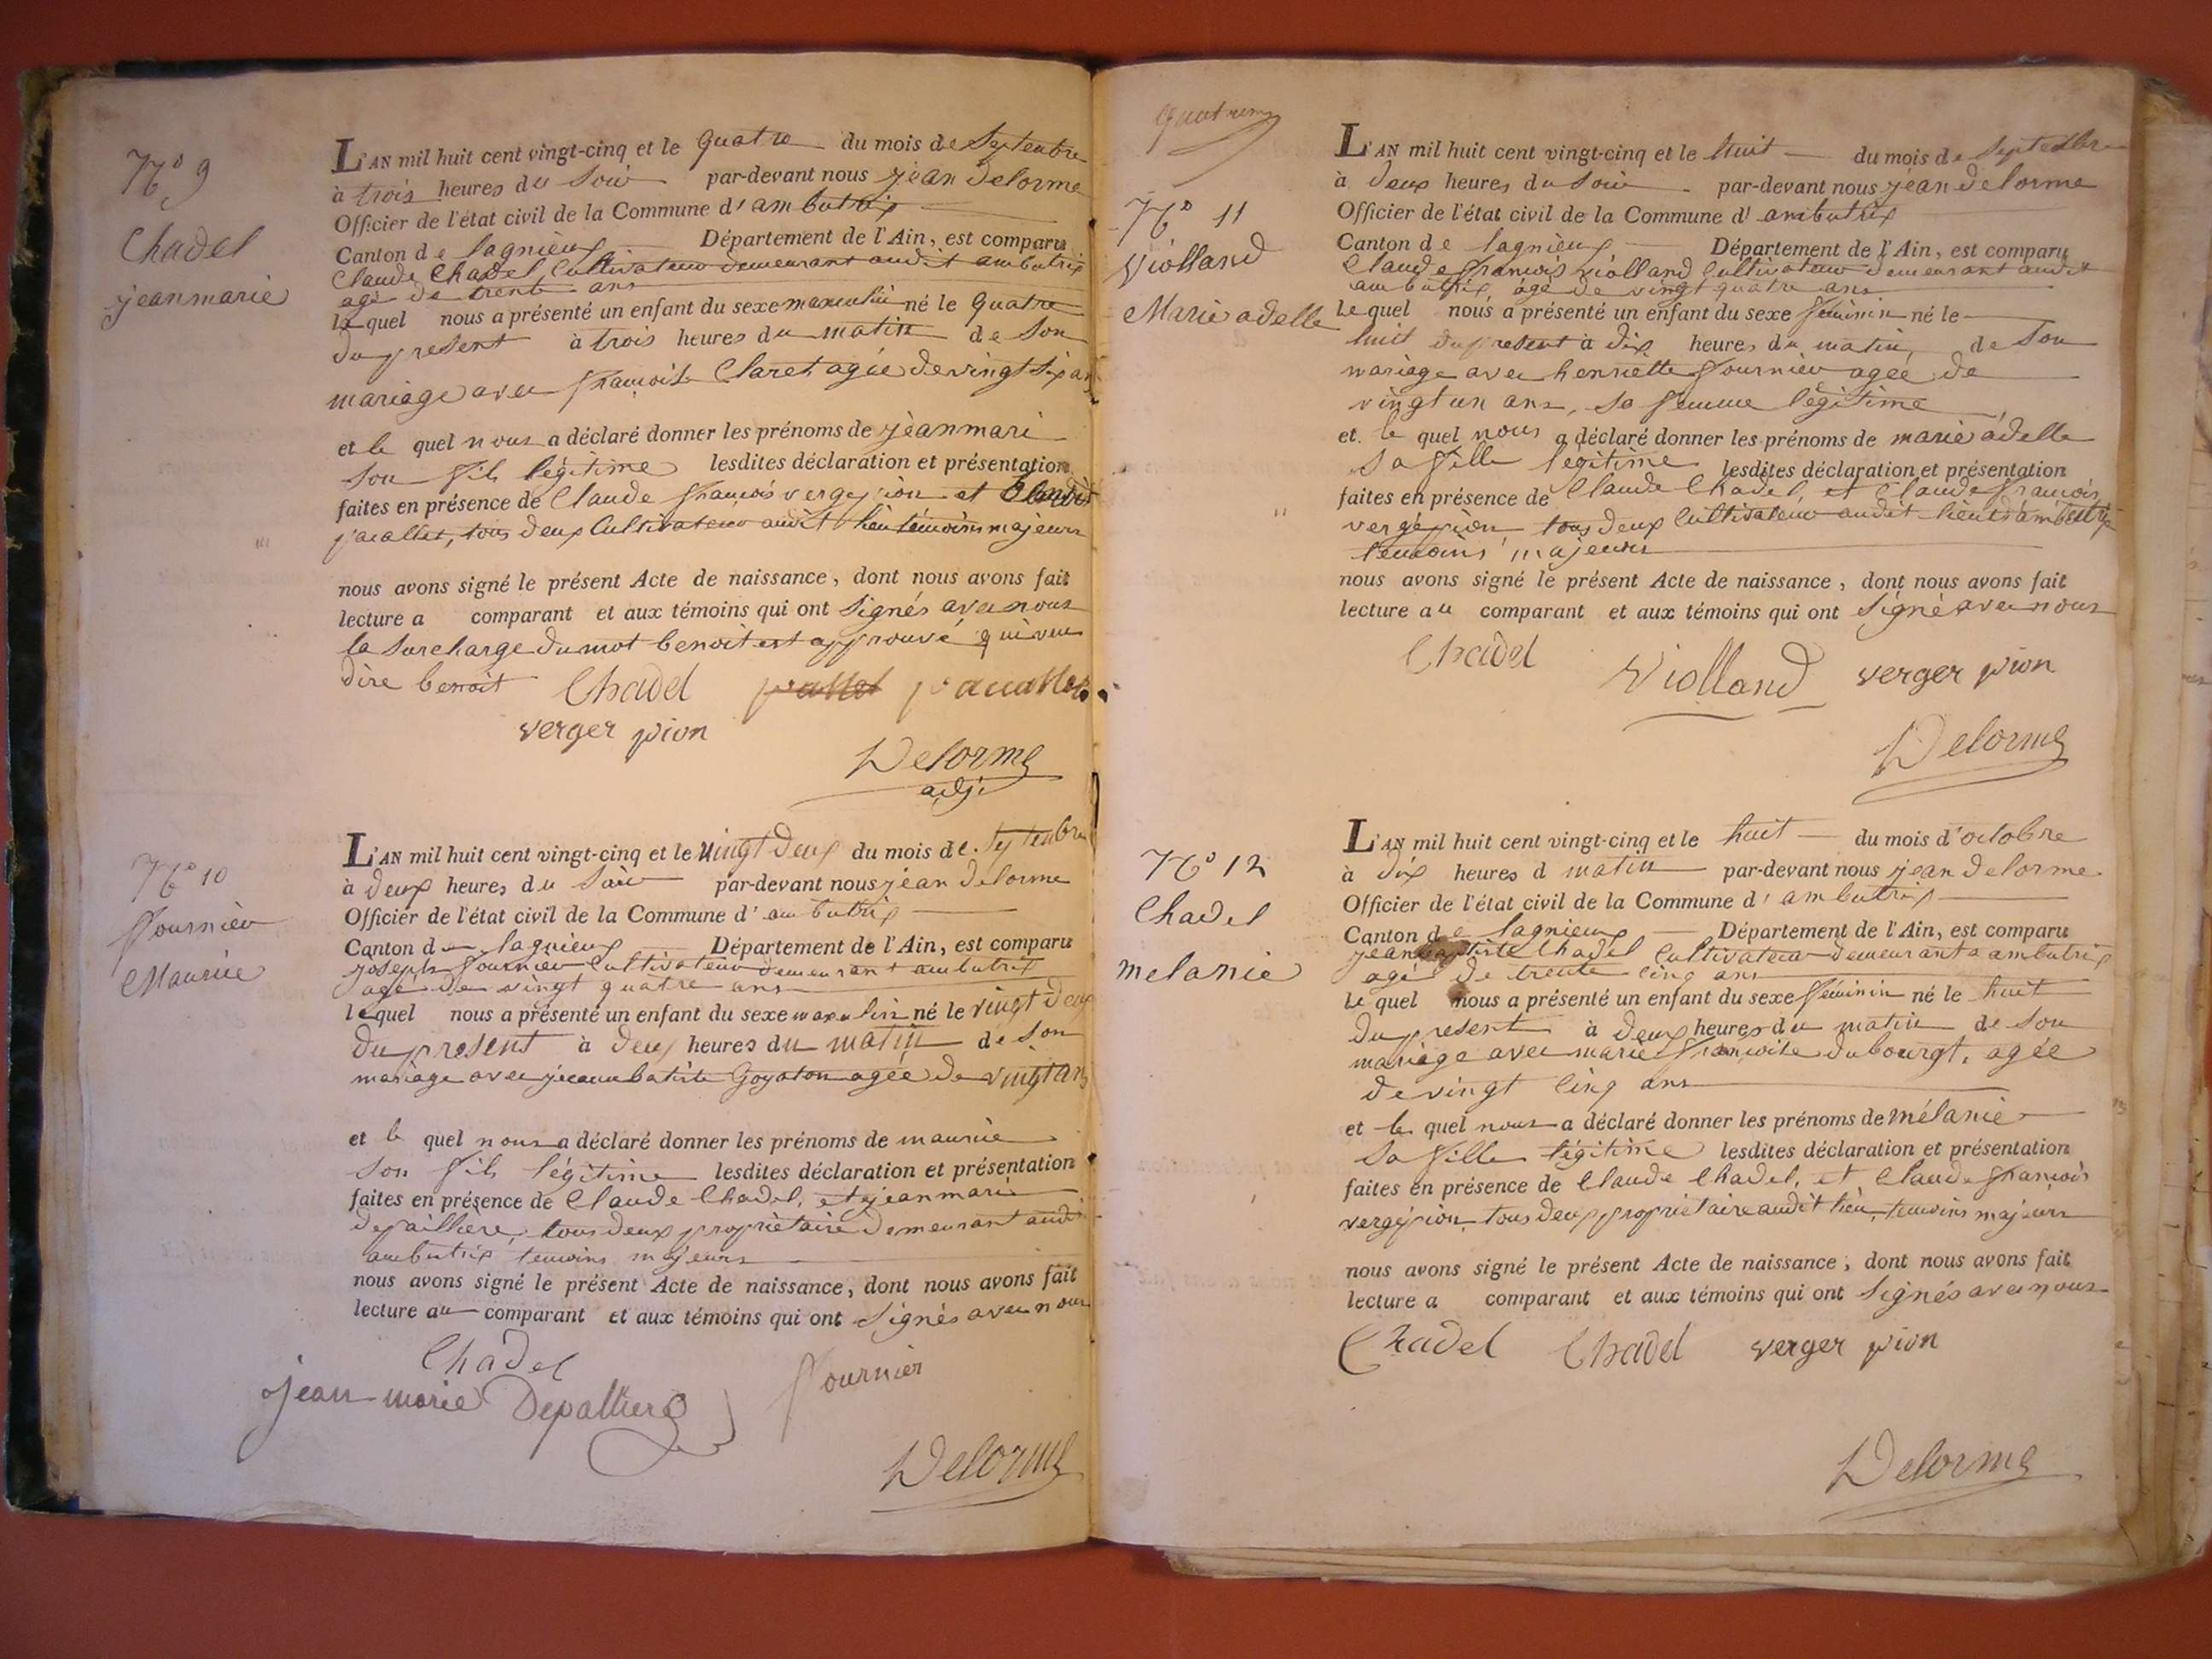 N.o 9
Chadel
jeanmarie
L'AN mil huit cent vingt-cinq et le quatre du mois de Septembre
à trois heures du Soir par-devant nous jean Delorme
Officier de l'état civil de la Commune d'ambutrix
Canton de lagnieux Département de l'Ain, est comparu
Claude Chadel Cultivateur demeurant audit ambutrix
agé de trente ans
lequel nous a présenté un enfant du sexe masculin né le quatre
du present à trois heures du matin de son
mariage avec françoise Claret agée de vingt six ans
et le quel nous a déclaré donner les prénoms de jeanmari
son fils légitime lesdites déclaration et présentation
faites en présence de Claude françois vergepion et
jacallet, tous deux Cultivateur audit lieu témoins majeurs
nous avons signé le présent Acte de naissance, dont nous avons fait
lecture a comparant et aux témoins qui ont Signés avec nous
la Surcharge du mot benoit est approuvé qui veu
dire benoit Chadel
verger pion
Delorme
adj.
N.o 10
fournier
Maurice
L'AN mil huit cent vingt-cinq et le vingt deux du mois de Septembre
à deux heures du Soir par-devant nous jean Delorme
Officier de l'état civil de la Commune d'ambutrix
Canton de lagnieux Département de l'Ain, est comparu
joseph fournier Cultivateur demeurant ambutrix
agé de vingt quatre ans
lequel nous a présenté un enfant du sexe masculin né le vingt deux
du present à deux heures du matin de son
mariage avec jeanne batiste Goyaton agée de vingt ans
et le quel nous a déclaré donner les prénoms de maurice
son fils légitime lesdites déclaration et présentation
faites en présence de Claude Chadel, et jeanmarie
depaillière, tous deux propriétaire demeurant audit
ambutrix temoins majeurs
nous avons signé le présent Acte de naissance, dont nous avons fait
lecture au comparant et aux témoins qui ont Signés avec nous
Chadel
jean marie Depalliere fournier
Delorme
N.o 11
Violland
Marie adelle
L'AN mil huit cent vingt-cinq et le huit du mois de Septembre
à deux heures du Soir par-devant nous jean delorme
Officier de l'état civil de la Commune d'ambutrix
Canton de lagnieux Département de l'Ain, est comparu
Claude françois violland Cultivateur demeurant audit
ambutrix agé de vingt quatre ans
lequel nous a présenté un enfant du sexe féminin né le
huit du present à dix heures du matin, de son
mariage avec henriette fournier agée de
vingt un ans, sa femme légitime
et le quel nous a déclaré donner les prénoms de marie adelle
sa fille légitime lesdites déclaration et présentation
faites en présence de Claude Chadel, et Claude françois
vergepion, tous deux Cultivateur audit lieu d'ambutrix
temoins majeurs
nous avons signé le présent Acte de naissance, dont nous avons fait
lecture au comparant et aux témoins qui ont Signé avec nous
Chadel Violland verger pion
Delorme
N.o 12
Chadel
melanie
L'AN mil huit cent vingt-cinq et le huit du mois d'octobre
à dix heures d matin par-devant nous jean Delorme
Officier de l'état civil de la Commune d'ambutrix
Canton de lagnieux Département de l'Ain, est comparu
jean baptiste Chadel Cultivateur demeurant a ambutrix
agé de trente cinq ans
le quel nous a présenté un enfant du sexe féminin né le huit
du present à deux heures du matin de son
mariage avec marie françoise dubourgt, agée
de vingt cinq ans
et le quel nous a déclaré donner les prénoms de mélanie
sa fille légitime lesdites déclaration et présentation
faites en présence de Claude Chadel, et Claude françois
vergépion, tous deux propriétaire audit lieu, temoins majeurs
nous avons signé le présent Acte de naissance, dont nous avons fait
lecture a comparant et aux témoins qui ont Signés avec nous
Chadel Chadel verger pion
Delorme